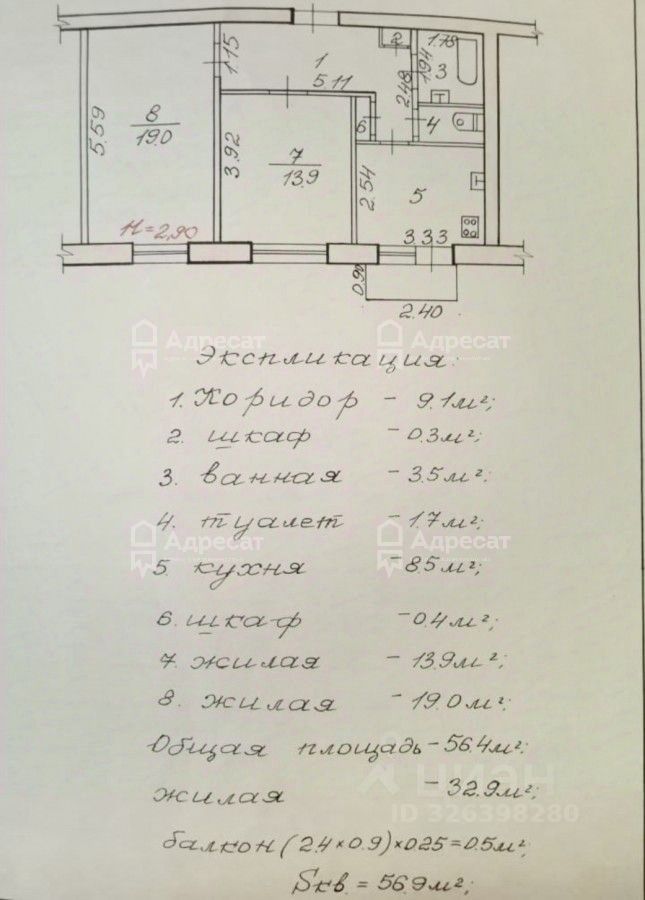 2
1.78
1.15
1
5.11
1.94
3
2.48
8
19.0
5.59
3.92
7
13.9
6
4
2.54
5
H=2,90
3.33
0.90
2.40
Адресат
Адресат
Экспликация:
1. Коридор - 9.1м²;
2. шкаф - 0.3м²;
3. ванная - 3.5м²;
4. туалет - 1.7м²;
Адресат
Адресат
5. кухня - 8.5м²;
6. шкаф - 0.4м²;
7. жилая - 13.9м²;
8. жилая - 19.0м²;
Общая площадь - 56.4м²;
жилая - 32.9м²;
циан
ID 326398280
балкон (2.4×0.9)×0.25=0.5м²;
Sкв. = 56.9м²;